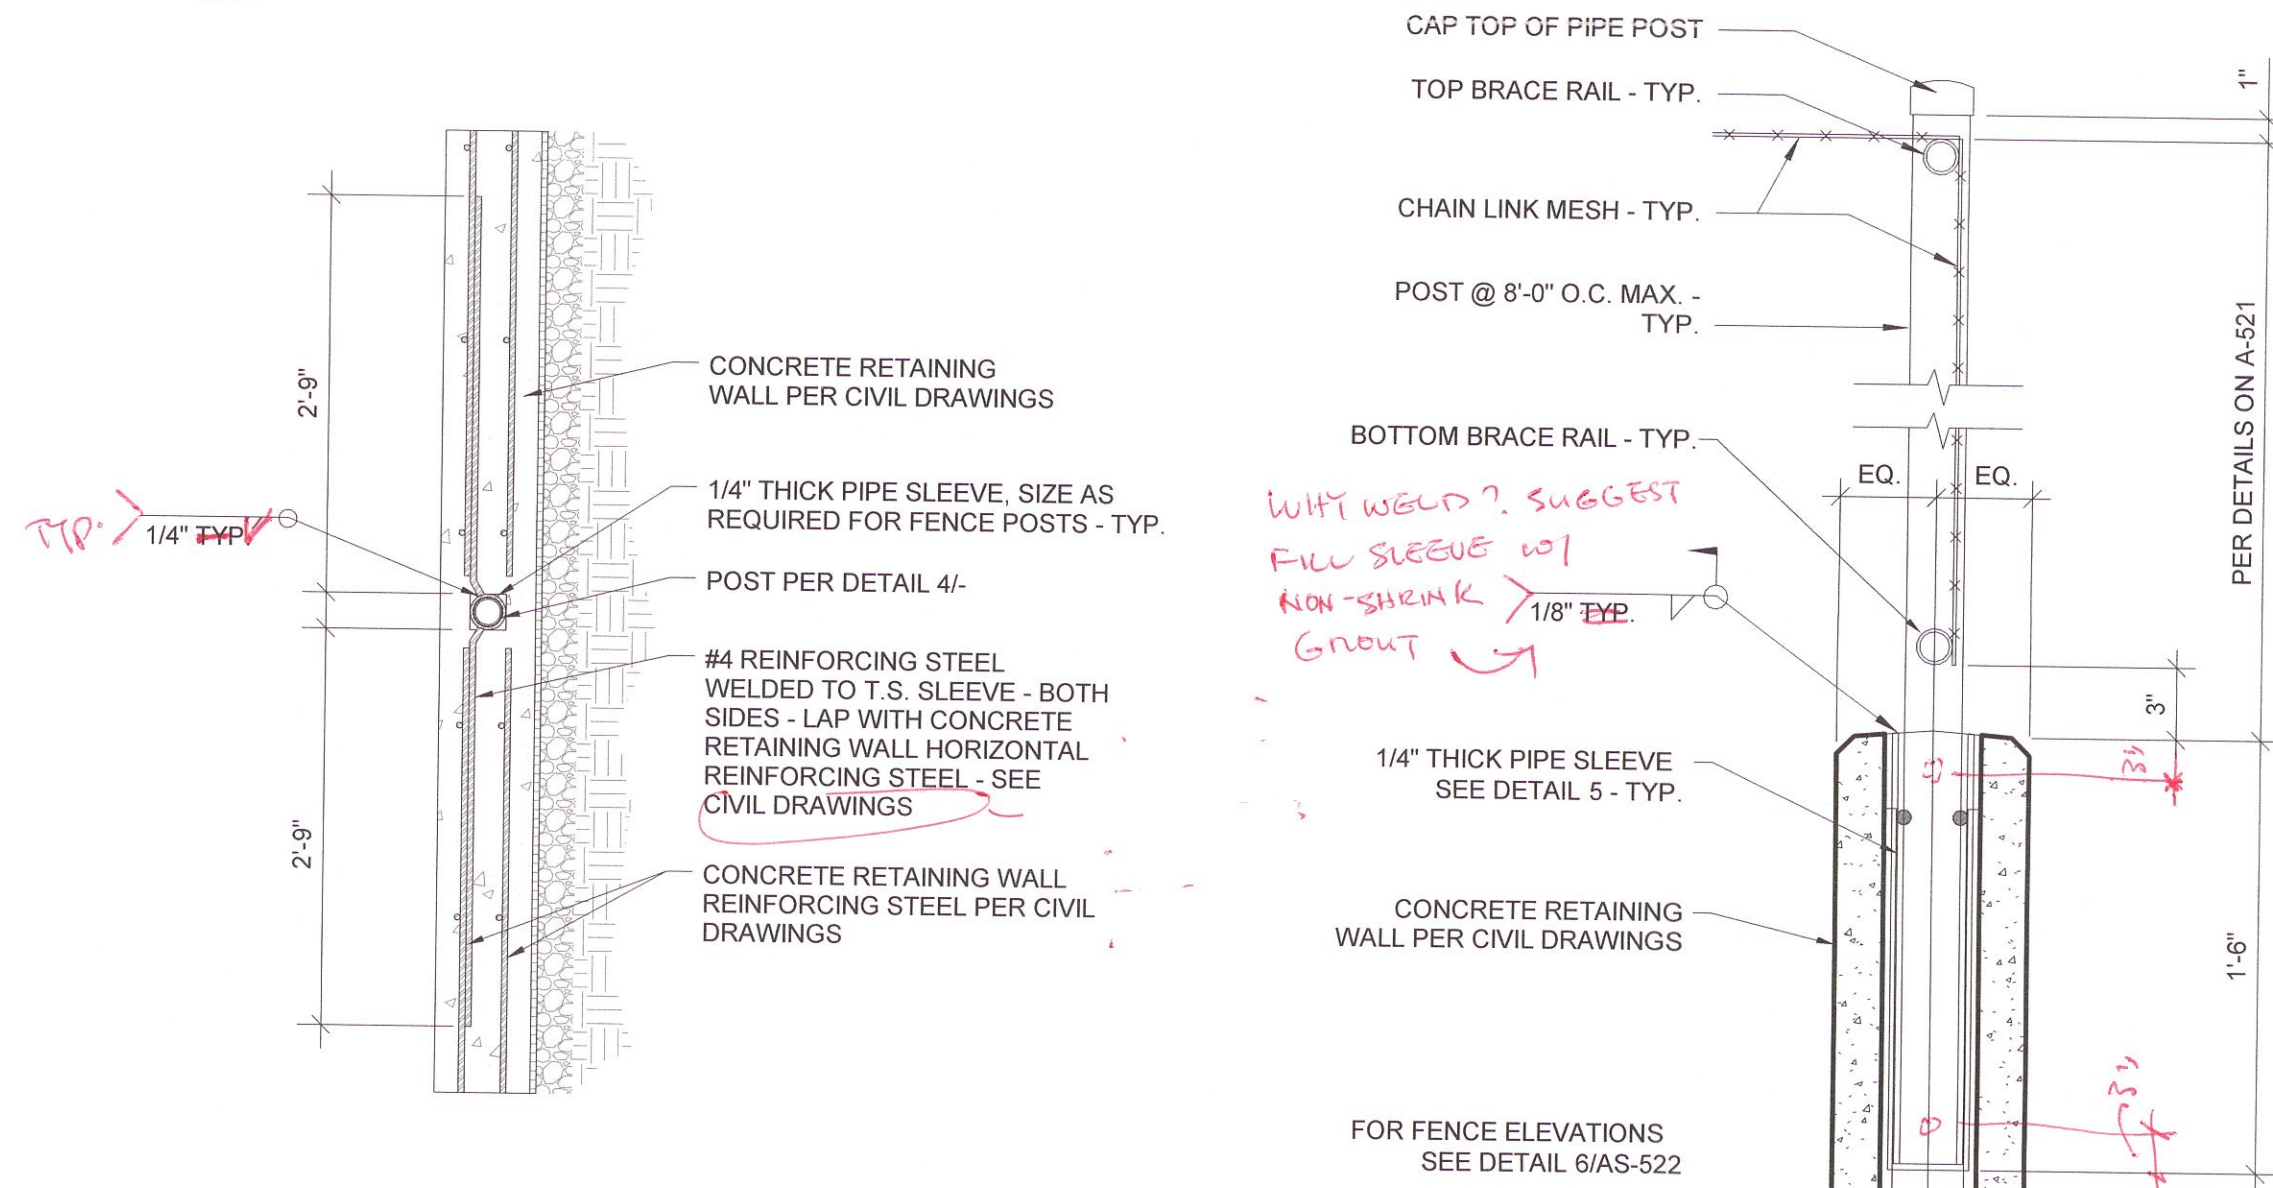 2'-9"
TYP.
1/4" TYP.
2'-9"
CONCRETE RETAINING
WALL PER CIVIL DRAWINGS
1/4" THICK PIPE SLEEVE, SIZE AS
REQUIRED FOR FENCE POSTS - TYP.
POST PER DETAIL 4/-
#4 REINFORCING STEEL
WELDED TO T.S. SLEEVE - BOTH
SIDES - LAP WITH CONCRETE
RETAINING WALL HORIZONTAL
REINFORCING STEEL - SEE
CIVIL DRAWINGS
CONCRETE RETAINING WALL
REINFORCING STEEL PER CIVIL
DRAWINGS
CAP TOP OF PIPE POST
TOP BRACE RAIL - TYP.
CHAIN LINK MESH - TYP.
POST @ 8'-0" O.C. MAX. -
TYP.
BOTTOM BRACE RAIL - TYP.
WHY WELD? SUGGEST
FILL SLEEVE W/
NON-SHRINK
GROUT
1/8" TYP.
1/4" THICK PIPE SLEEVE
SEE DETAIL 5 - TYP.
CONCRETE RETAINING
WALL PER CIVIL DRAWINGS
FOR FENCE ELEVATIONS
SEE DETAIL 6/AS-522
EQ.
EQ.
1"
PER DETAILS ON A-521
3"
3"
1'-6"
3"